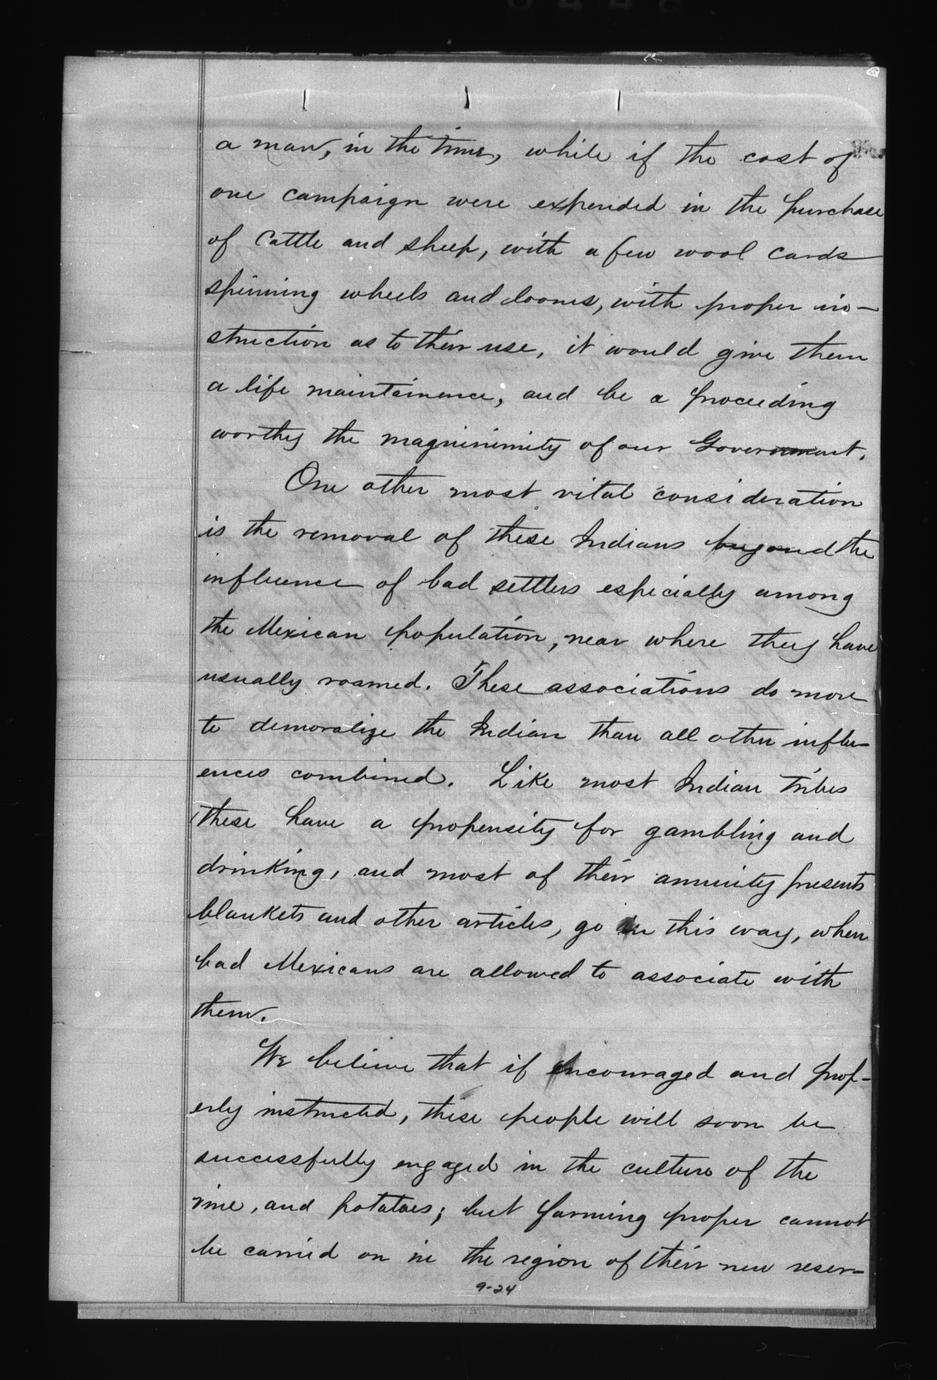 a man, in the time, while if the cost of
one campaign were expended in the purchase
of cattle and sheep, with a few wool cards
spinning wheels and looms, with proper in-
struction as to their use, it would give them
a life maintainence, and be a proceeding
worthy the magninimity of our Government.
One other most vital consideration
is the removal of these Indians beyond the
influence of bad settlers especially among
the Mexican population, near where they have
usually roamed. These associations do more
to demoralize the Indian than all other influ-
ences combined. Like most Indian tribes
these have a propensity for gambling and
drinking, and most of their annuity presents
blankets and other articles, go in this way, when
bad Mexicans are allowed to associate with
them.
We believe that if encouraged and prop-
erly instructed, these people will soon be
successfully engaged in the culture of the
vine, and potatoes; but farming proper cannot
be carried on in the region of their new reser-
9-24